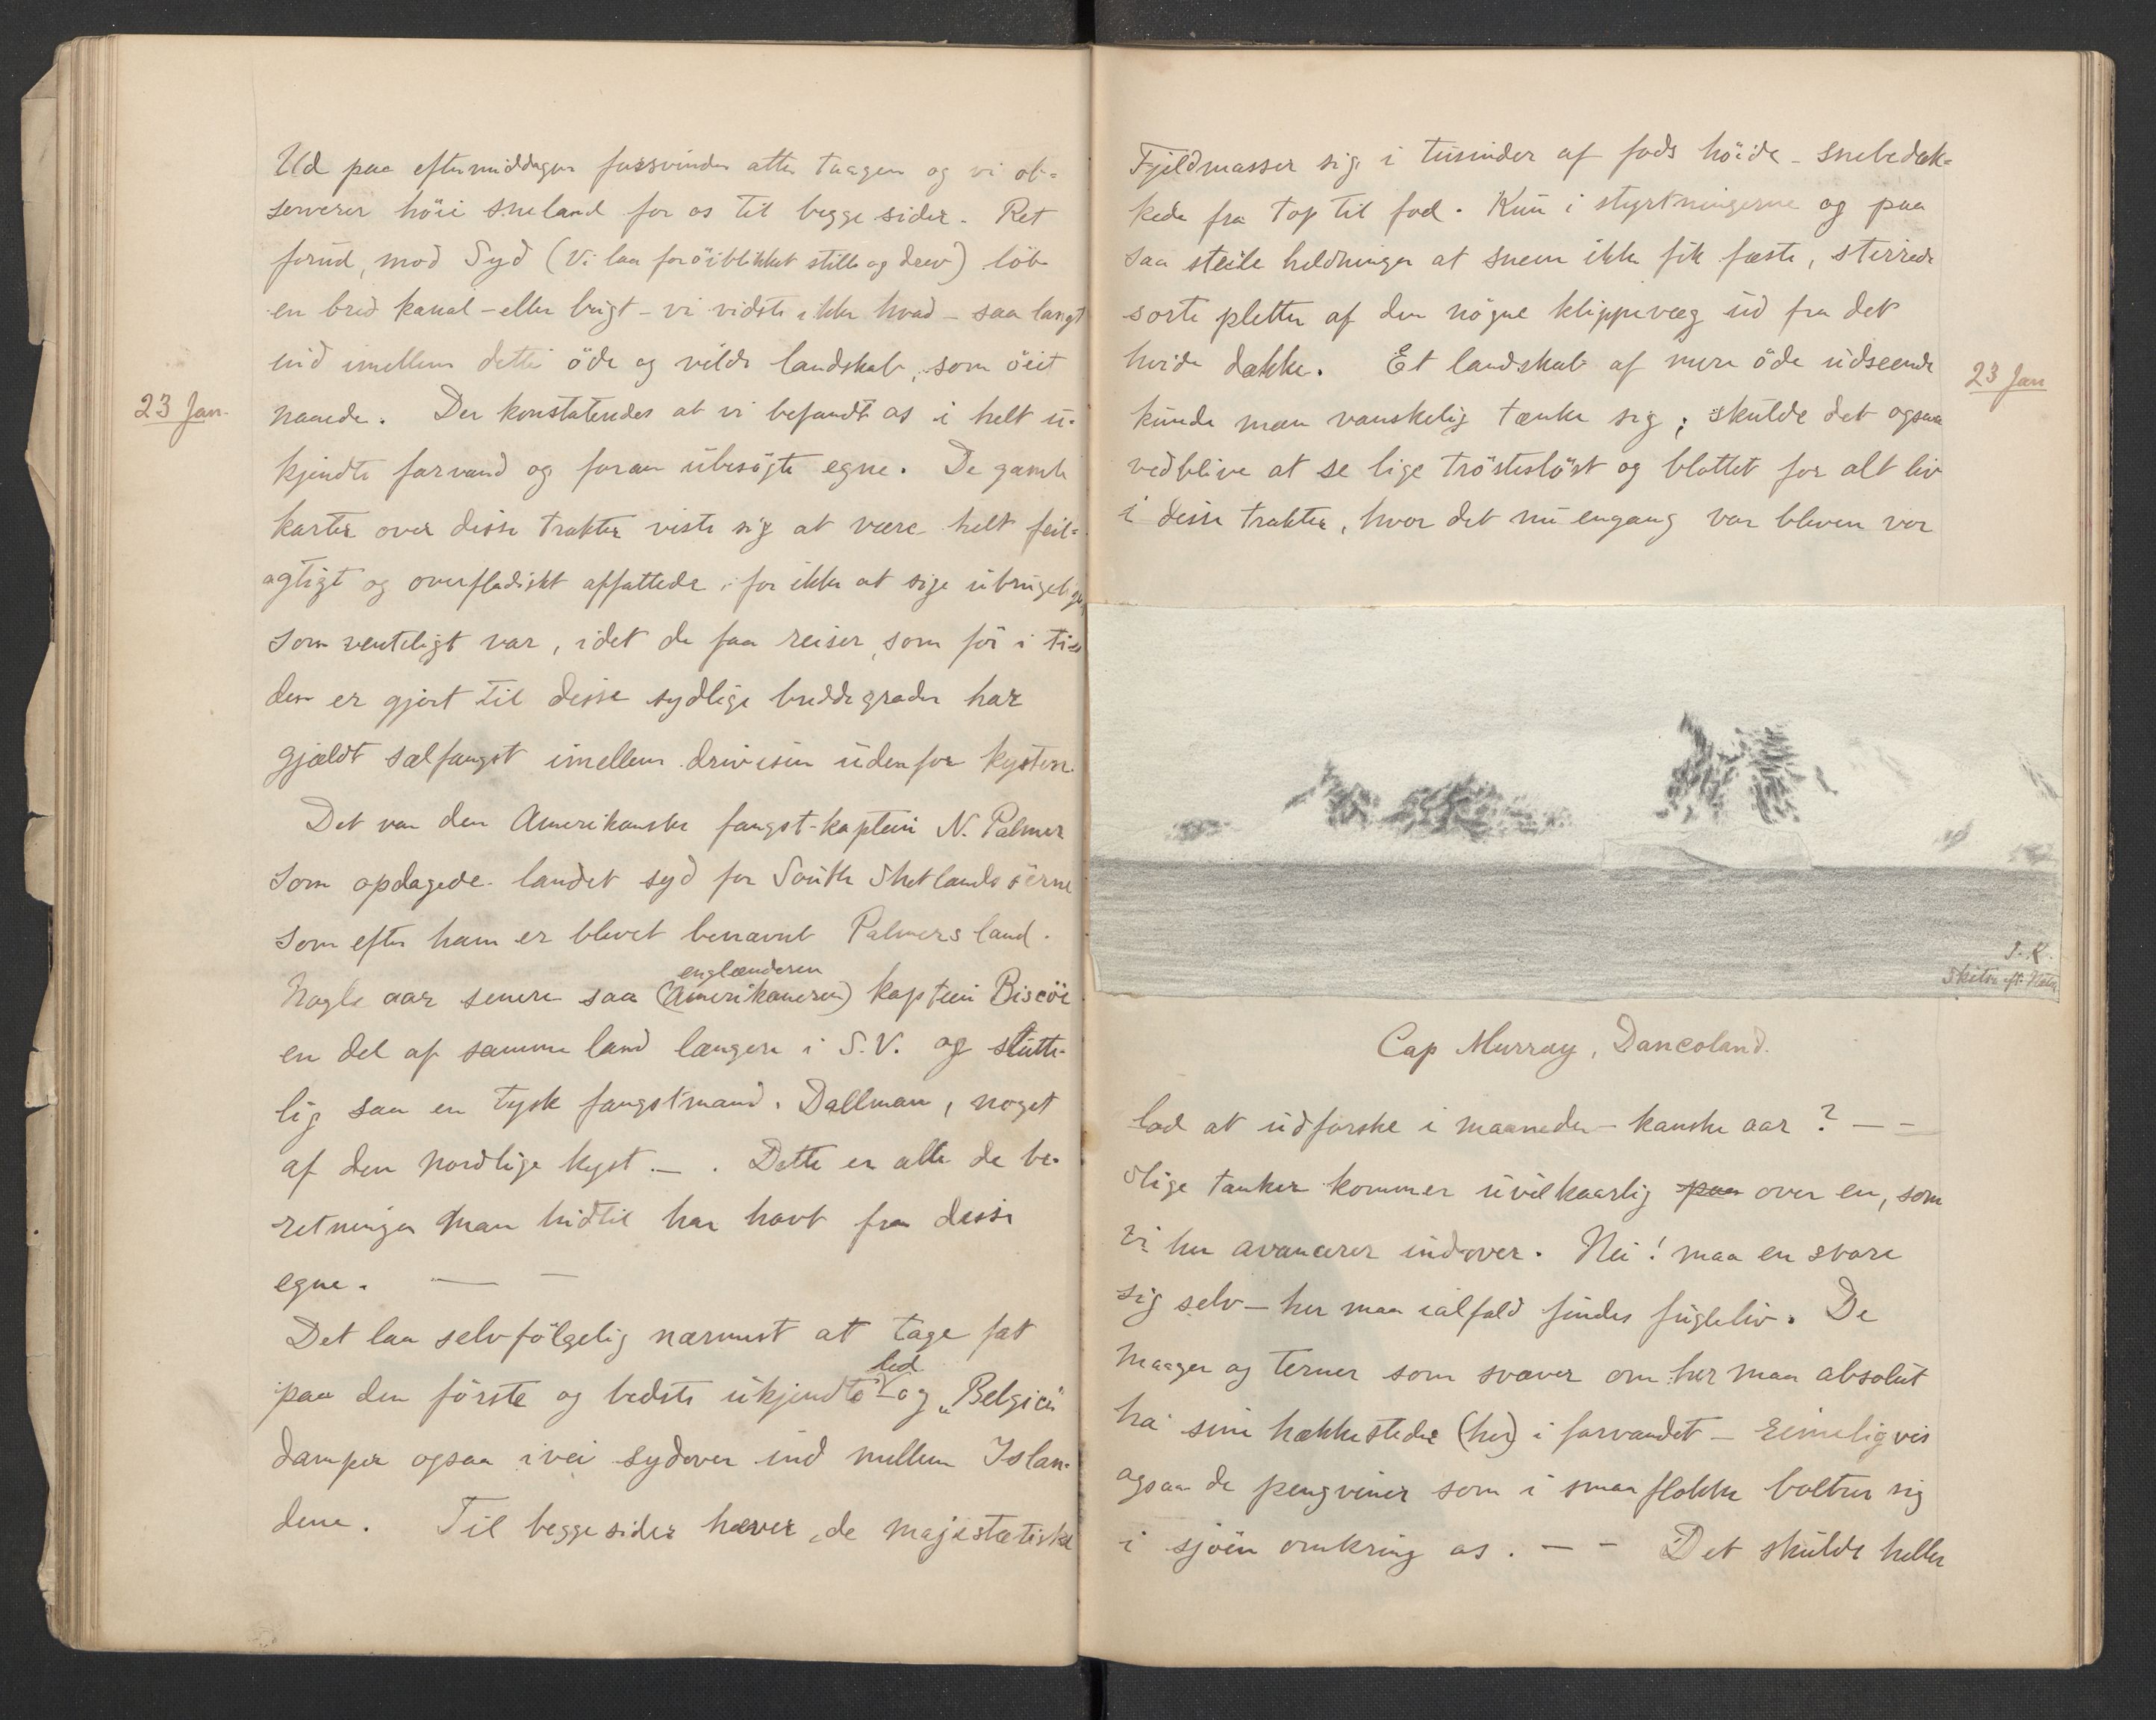 Ud paa eftermiddagen forsvinder atter taagen og vi ob=
serverer höie sneland for os til begge sider. Ret
forud, mod Syd (Vi laa foröiblikket stille og drev) löb
en bred kanal - eller bugt - vi vidste ikke hvad - saa langt
ind imellem dette öde og vilde landskab, som öiet
23 Jan.
naaede. Der konstateredes at vi befandt os i helt u-
kjendte farvand og foran übesögte egne. De gamle
karter over disse trakter viste sig at være helt feil=
agtigt og overfladiskt affattede, for ikke at sige übrugelige,
som venteligt var, idet de faa reiser, som för i ti=
den er gjort til disse sydlige breddegrader har
gjældt sælfangst imellem drivisen udenfor kysten.
Det var den Amerikanske fangst-kaptein N. Palmer
som opdagede landet syd for South Shetlandsöerne
som efter ham er blevet benævnt Palmers land.
englænderen
Nogle aar senere saa (Amerikaneren) kaptein Biscöe
en del af samme land længere i S.V. og slutte-
lig saa en tysk fangstmand, Dallman, noget
af den nordlige kyst. — . Dette er alle de be-
retninger man hidtil har havt fra disse
egne. — —
Det laa selvfölgelig nærmest at tage fat
led
paa den förste og bedste ukjendte og „Belgica"
damper ogsaa ivei sydover ind mellem Islan-
dene. Til begge sider hæver de majestætiske
Fjeldmasser sig i tusinder af fods höide - snebedæk=
kede fra top til fod. Kun i styrtningerne og paa
saa steile heldninger at sneen ikke fik fæste, stirrede
sorte pletter af den nögne klippevæg ud fra det
hvide dække. Et landskab af mere öde udseende
23 Jan
kunde man vanskelig tænke sig; skulde det ogsaa
vedblive at se lige tröstelöst og blottet for alt liv
i disse trakter, hvor det nu engang var bleven vor
J. K.
Skitse eft. Natur
Cap Murray, Dancoland.
lod at udforske i maaneder - kanske aar? — —
Slige tanker kommer uvilkaarlig paa over en, som
vi her avancerer indover. Nei! maa en svare
sig selv - her maa ialfald findes fugleliv. De
maager og terner som svæver om her maa absolut
ha sine hækkesteder (her) i farvandet - rimeligvis
ogsaa de pengviner som i smaa flokke boltrer sig
i sjöen omkring os. — — Det skulde heller